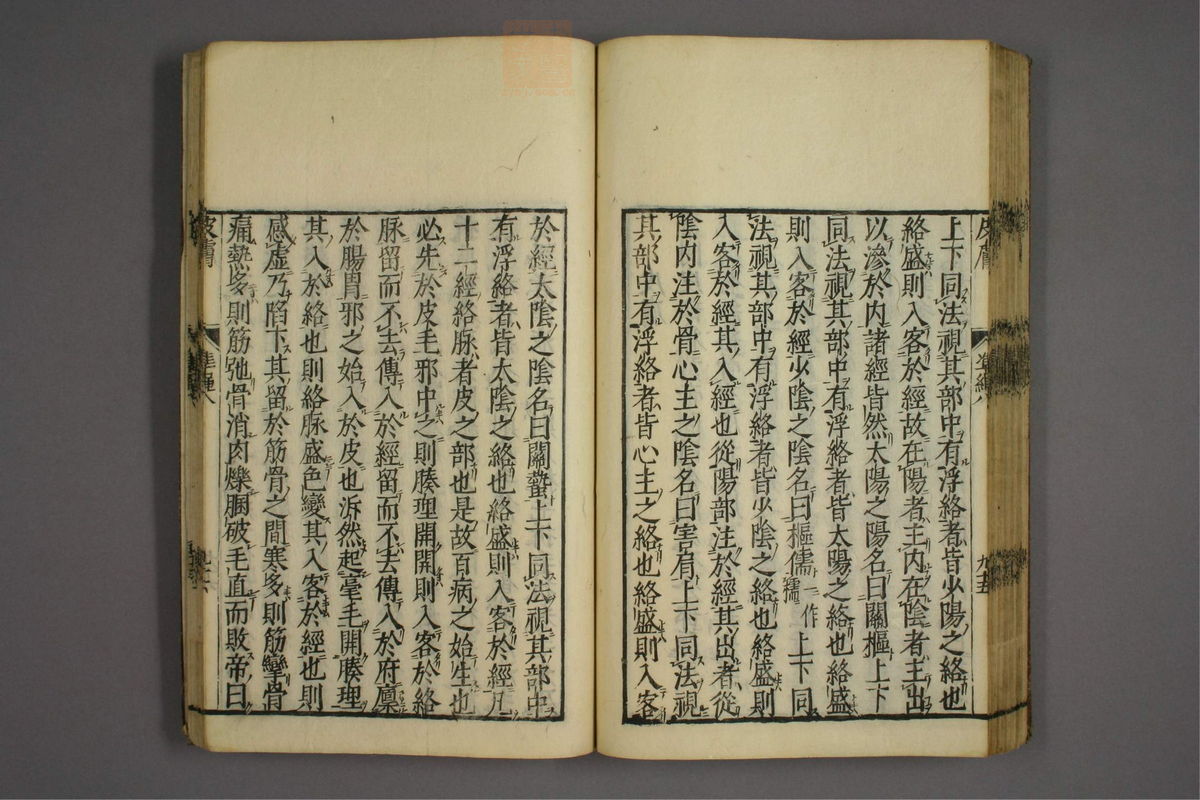 上下同法視其部中有浮絡者皆少陽之絡也
絡盛則入客於經故在陽者主内在陰者主出
以滲於内諸經皆然太陽之陽名曰關樞上下
同法視其部中有浮絡者皆太陽之絡也絡盛
則入客於經少陰之陰名曰樞儒一作㯠上下同
法視其部中有浮絡者皆少陰之絡也絡盛則
入客於經其入經也從陽部注於經其出者從
陰内注於骨心主之陰名曰害肩上下同法視
其部中有浮絡者皆心主之絡也絡盛則入客
於經太陰之陰名曰關蟄上下同法視其部中
有浮絡者皆太陰之絡也絡盛則入客於經凡
十二經絡脉者皮之部也是故百病之始生也
必先於皮毛邪中之則腠理開開則入客於絡
脉留而不去傳入於經留而不去傳入於府廪
於腸胃邪之始入於皮也泝然起毫毛開腠理
其入於絡也則絡脉盛色變其入客於經也則
感虚乃陷下其留於筋骨之間寒多則筋攣骨
痛熱多則筋弛骨消肉爍䐃破毛直而敗帝曰
皮膚